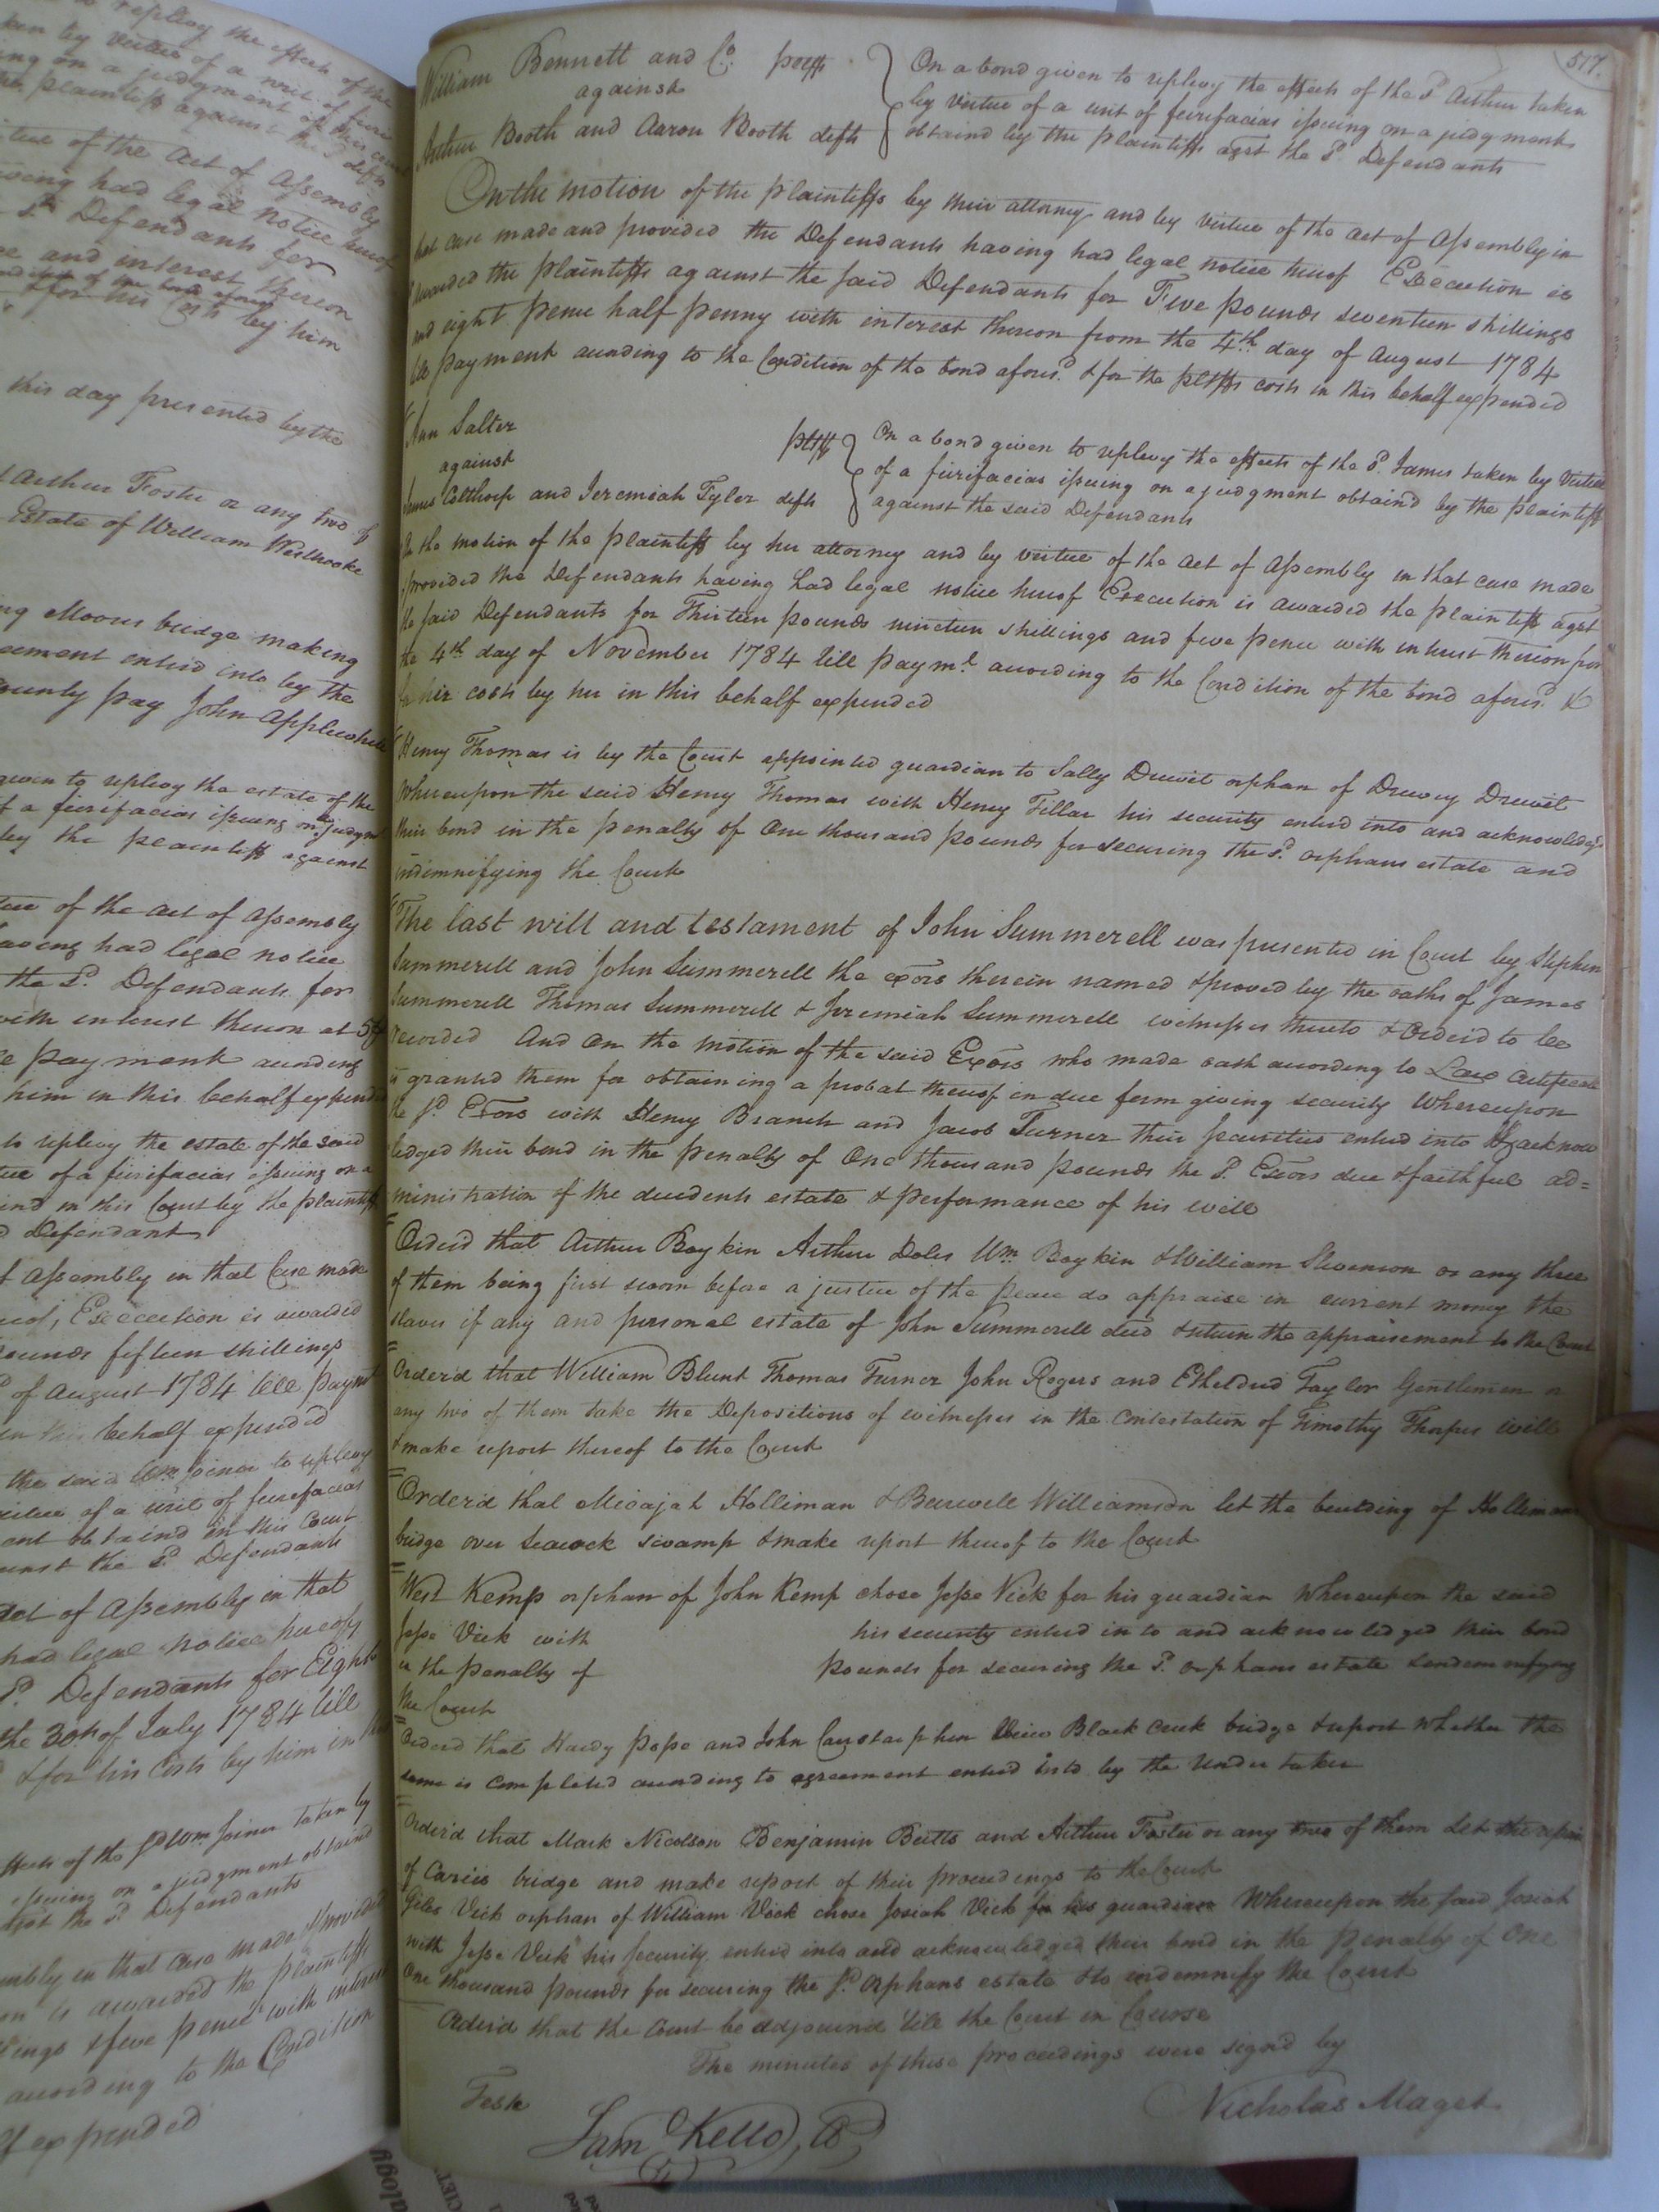 to replevy the effects of the
ken by virtue of a writ of fieri
ing on a judgment of this court
the plaintiff against the sd. defts
itue of the Act of Assembly
aving had legal notice hereof
sd. Defendants for
ce and interest thereon
condition of the bond aforesd
& for his Costs by him
this day presented by the
d Arthur Foster or any two of
Estate of William Westbrooke
ing Moores bridge making
eement enterd into by the
ounty pay John Applewhaite
given to replevy the estate of the
of a fierifacias issuing on judgmt
by the plaintiff against
tue of the act of Assembly
aving had legal notice
the sd. Defendants for
with interest thereon at 5
e payment according
him in this behalf expended
to replevy the estate of the said
tue of a fierifacias issuing on a
ind in this Court by the plaintiff
d Defendant
f Assembly in that Case made
eof, Execution is awarded
ounds fifteen shillings
of August 1784 till paymt
in this behalf expended
the said Wm. Joiner to replevy
virtue of a writ of fierefacias
ent obtaind in this Court
inst the sd. Defendants
Act of Assembly in that
had legal notice hereof,
sd. Defendants for Eight
the 30th of July 1784 till
& for his Costs by him in
ffects of the sd Wm Joiner taken by
issuing on a judgment obtaind
agst the sd. Defendants
embly in that case made & provided
on is awarded the plaintiff
lings & five pence with interest
according to the Condition
lf expended
517.
William Bennett and Co. pltffs
against
Arthur Booth and Aaron Booth defts
On a bond given to replevy the effects of the sd. Arthur taken
by virtue of a writ of feirifacias issuing on a judgment
obtaind by the plaintiffs agst the sd. Defendants
On the motion of the plaintiffs by their attorney and by virtue of the act of Assembly in
that case made and provided the Defendants having had legal notice hereof Execution is
awarded the plaintiffs against the said Defendants for Five pounds seventeen shillings
and eight pence half penny with interest thereon from the 4th. day of August 1784
till payment according to the Condition of the bond aforesd. & for the pltffs costs in this behalf expended
Ann Salter pltff
against
James Calthorp and Jeremiah Tyler defts
On a bond given to replevy the effects of the sd. James taken by virtue
of a feirifacias issuing on a judgment obtaind by the plaintiff
against the said Defendants
On the motion of the plaintiff by her attorney and by virtue of the act of Assembly in that case made
& provided the Defendants having had legal notice hereof Execution is awarded the plaintiff agst
the said Defendants for Thirteen pounds nineteen shillings and five pence with interest thereon from
the 4th day of November 1784 till paymt. according to the Condition of the bond aforesd. &
for his costs by her in this behalf expended
Henry Thomas is by the Court appointed guardian to Sally Drewit orphan of Drewry Drewit
Whereupon the said Henry Thomas with Henry Tillar his security enterd into and acknowledg'd
their bond in the penalty of One thousand pounds for securing the sd. orphans estate and
indemnifying the Court
The last will and testament of John Summerell was presented in Court by Stephen
Summerell and John Summerell the exors therein named & proved by the oaths of James
Summerell Thomas Summerell & Jeremiah Summerell witnesses thereto & Orderd to be
recorded And on the motion of the said Exors who made oath according to Law Certificate
is granted them for obtaining a probat thereof in due form giving security Whereupon
the sd. Exors with Henry Branch and Jacob Turner their securities enterd into & acknow
ledged their bond in the penalty of One thousand pounds the sd. Exors due & faithful ad=
ministration of the decedents estate & performance of his will
Orderd that Arthur Boykin Arthur Doles Wm. Boykin & William Stevenson or any three
of them being first sworn before a justice of the peace do appraise in current money the
slaves if any and personal estate of John Summerell decd & return the appraisement to the Court
Order'd that William Blunt Thomas Turner John Rogers and Etheldred Taylor Gentlemen or
any two of them take the Depositions of witnesses in the contestation of Timothy Thorpes will
& make report thereof to the Court
Order'd that Micajah Holliman & Burwell Williamson let the building of Hollimans
bridge over Seacock swamp & make report thereof to the Court
West Kemp orphan of John Kemp chose Jesse Vick for his guardian Whereupon the said
Jesse Vick with his security enterd into and acknowledged their bond
in the penalty of pounds for securing the sd. orphans estate & indemnifying
the Court
Orderd that Hardy Pope and John Carstarphen View Black Creek bridge & report Whether the
same is compleated according to agreement enterd into by the Undertaker
Order'd that Mark Nicolson Benjamin Britts and Arthur Foster or any two of them let the repair
of Caries bridge and make report of their proceedings to the Court
Giles Vick orphan of William Vick chose Josiah Vick for his guardian Whereupon the said Josiah
with Jesse Vick his security enterd into and acknowledged their bond in the penalty of One
One thousand pounds for securing the sd. Orphans estate & to indemnify the Court
Order'd that the Court be adjournd till the Court in Course
The minutes of these proceedings were signd by
Nicholas Maget
Teste
Sam Kello, CC